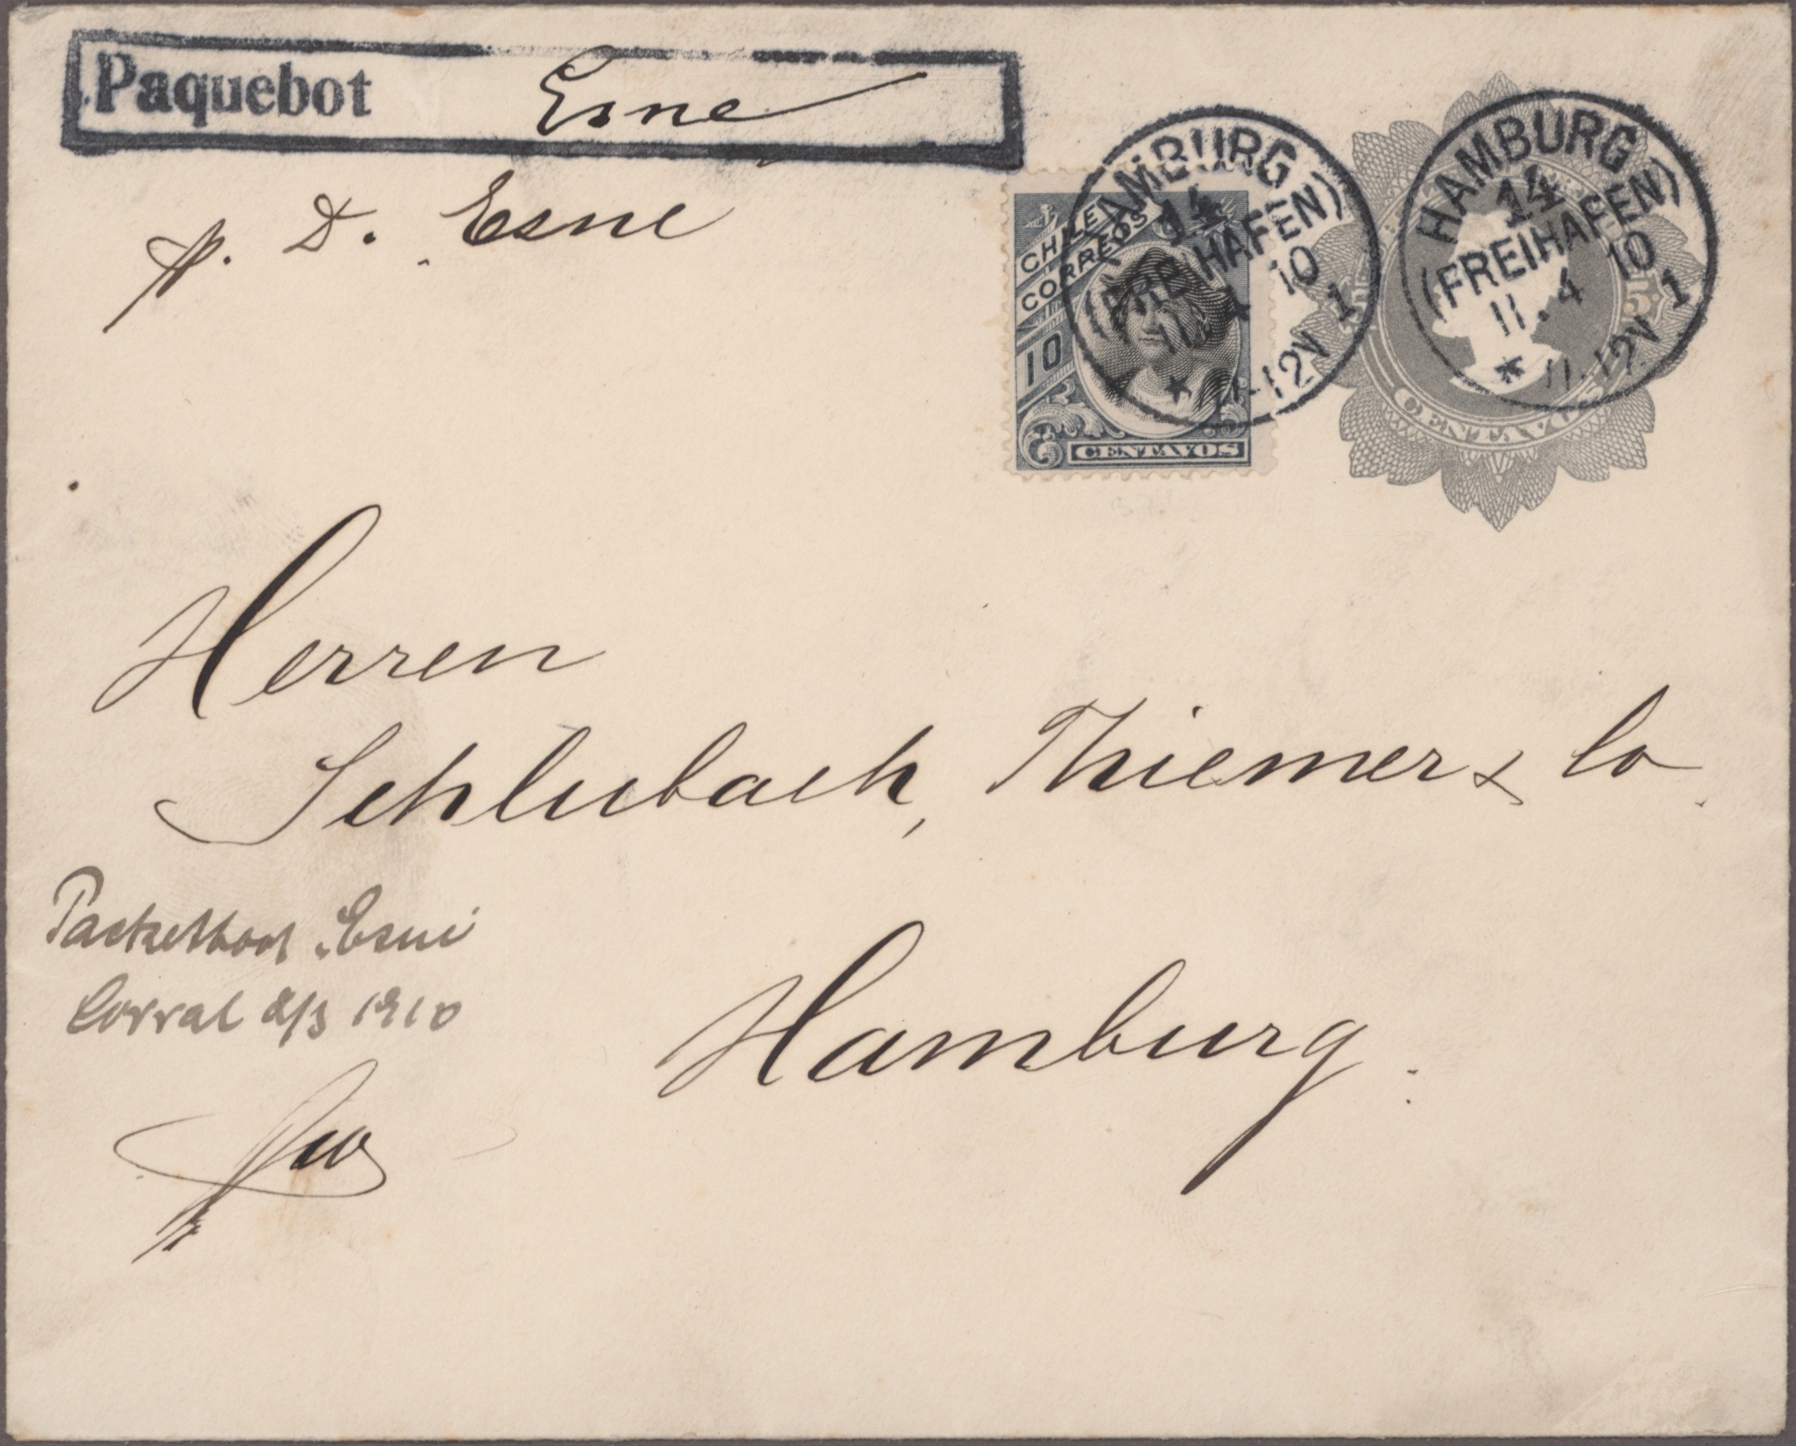 Paquebot Esne
p. D. Esne
CHILE
CORREOS
10
CENTAVOS
HAMBURG
14
(FREIHAFEN)
11.4 10
* 11-12V 1
HAMBURG
14
(FREIHAFEN)
11.4 10
* 11-12V 1
CENTAVOS
Herren
Schlubach, Thiemer & Co.
Packetboot Esne
Corral 2/3 1910
Hamburg.